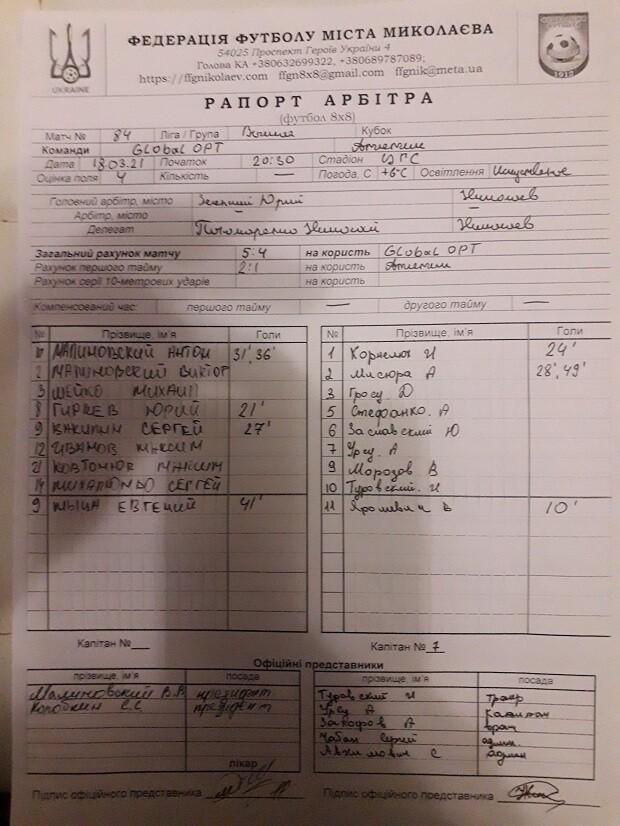 ФЕДЕРАЦІЯ ФУТБОЛУ МІСТА МИКОЛАЄВА
54025 Проспект Героїв України 4
Голова КА +380632699322, +380689787089;
https://ffgnikolaev.com ffgn8x8@gmail.com ffgnik@meta.ua
UKRAINE
РАПОРТ АРБІТРА
(футбол 8х8)
Матч № 84 Ліга / Група Кубок
Команди GLobaL OPT
Дата 18.03.21 Початок 20:30 Стадіон
Оцінка поля 4 Кількість — Погода, С +6°С Освітлення
Головний арбітр, місто Юрий
Арбітр, місто
Делегат Пономаренко Николай
Загальний рахунок матчу 5:4 на користь GLobaL OPT
Рахунок першого тайму 2:1 на користь
Рахунок серії 10-метрових ударів на користь
Компенсований час: першого тайму — другого тайму —
№ Прізвище, ім'я Голи № Прізвище, ім'я Голи
10 МАЛИНОВСКИЙ АНТОН 31', 36' 1 И 24'
2 МАЛИНОВСКИЙ ВИКТОР 2 Мисюра А 28', 49'
3 ШЕЙКО МИХАИЛ 3 Гросу Д
8 ЮРИЙ 21' 5 Стефанко. А
9 ВАКУЛИН СЕРГЕЙ 27' 6 Заславский Ю
12 ИВАНОВ МАКСИМ 7 Урсу. А
21 КОВТОНЮК МАКСИМ 9 Морозов В
14 СЕРГЕЙ 10 Туровский. И
9 ЕВГЕНИЙ 41' 11 В 10'
Капітан №__ Капітан № 7
Офіційні представники
прізвище, ім'я посада прізвище, ім'я посада
Малиновский В.Р президент Туровский И тренер
С.С президент Урсу А капитан
А врач
Чабан Сергей админ.
С админ
лікар
Підпис офіційного представника Підпис офіційного представника